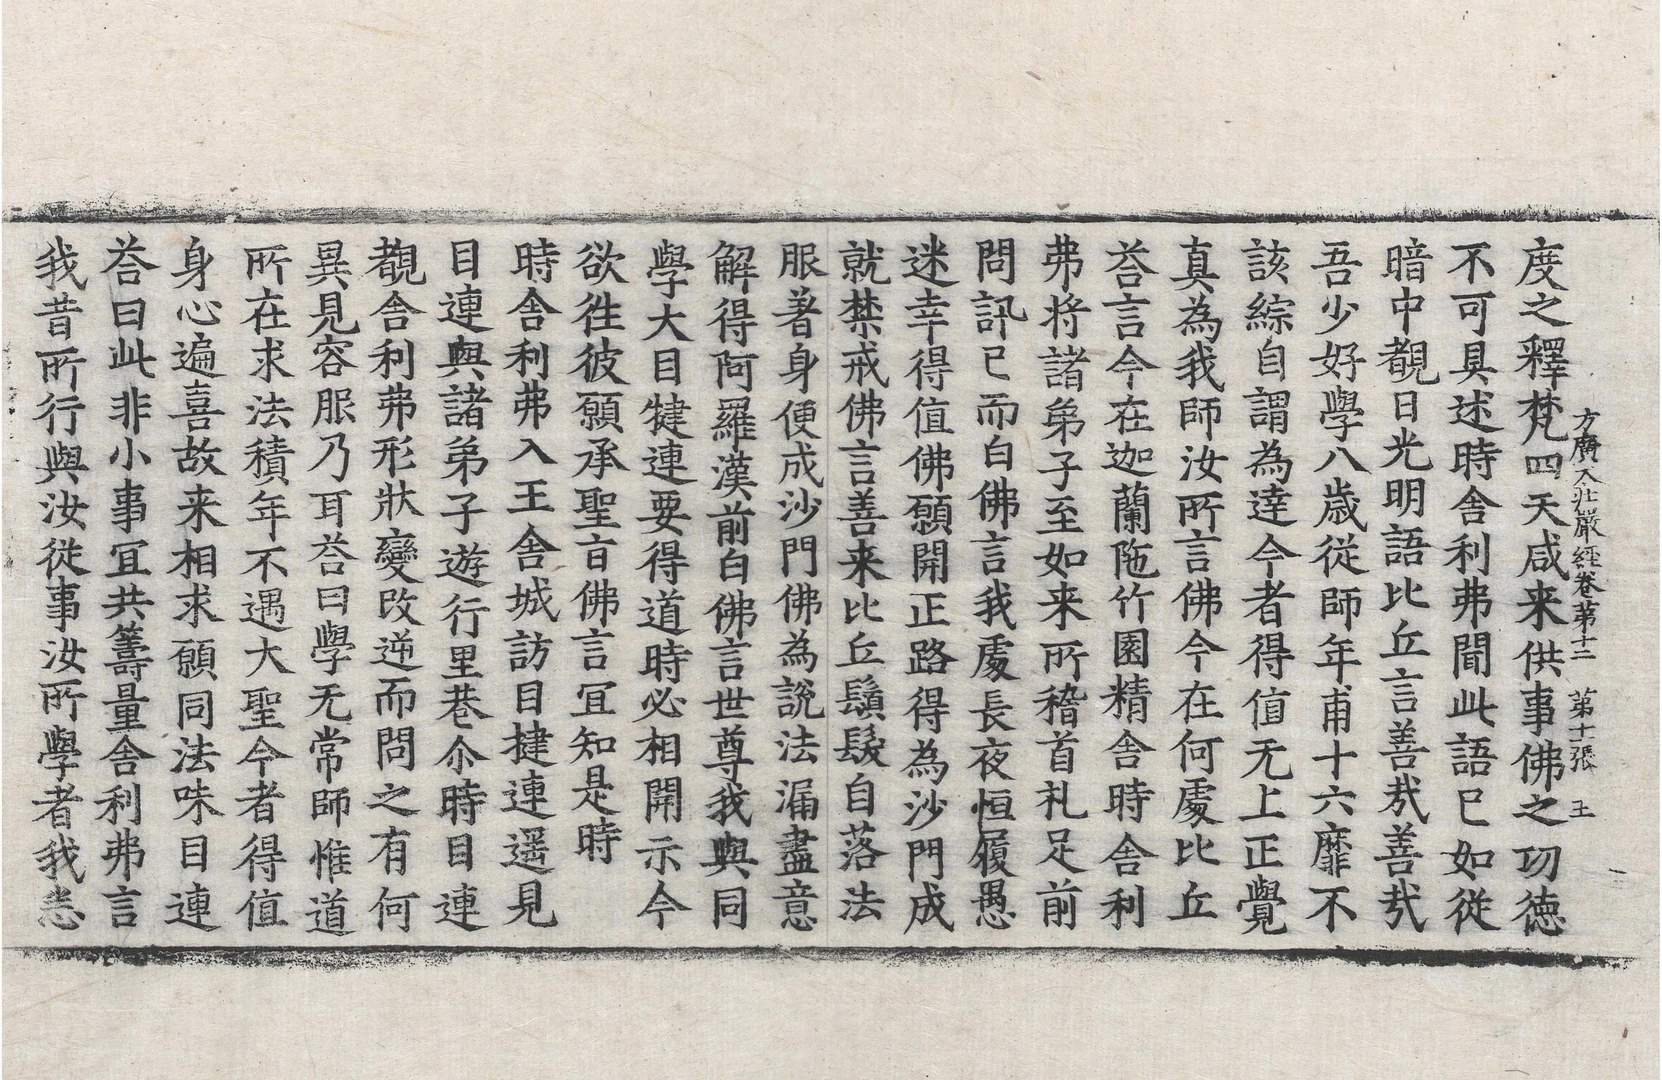 方廣大莊嚴經卷第十二　第十一張　王
度之釋梵四天咸来供事佛之功德
不可具述時舎利弗聞此語已如從
暗中覩日光明語比丘言善㢤善㢤
吾少好學八歳從師年甫十六靡不
該綜自謂為達今者得值无上正覺
真為我師汝所言佛今在何處比丘
荅言今在迦蘭陁竹園精舎時舎利
弗将諸弟子至如来所稽首礼足前
問訊已而白佛言我處長夜恒履愚
迷幸得值佛願開正路得為沙門成
就禁戒佛言善来比丘鬚髮自落法
服著身便成沙門佛為說法漏盡意
解得阿羅漢前白佛言世尊我與同
學大目揵連要得道時必相開示今
欲徃彼願承聖旨佛言冝知是時
時舎利弗入王舎城訪目揵連遥見
目連與諸弟子遊行里巷尒時目連
覩舎利弗形狀變改逆而問之有何
異見容服乃耳荅曰學无常師惟道
所在求法積年不遇大聖今者得值
身心遍喜故来相求願同法味目連
荅曰此非小事冝共籌量舎利弗言
我昔所行與汝從事汝所學者我悉